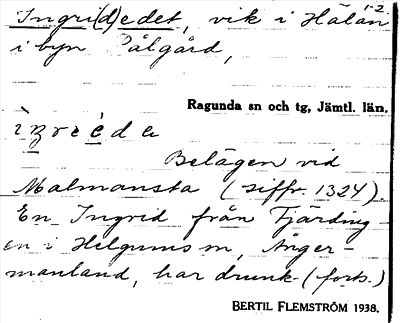 1-2.
Ingri(d)edet, vik i Hälän
i byn Pålgård,
Ragunda sn och tg, Jämtl. län.
Belägen vid
Malmansta (siffr. 1324).
En Ingrid från Fjärding
en i Helgums sn, Ånger-
manland, har drunk- (forts.)
BERTIL FLEMSTRÖM 1938.